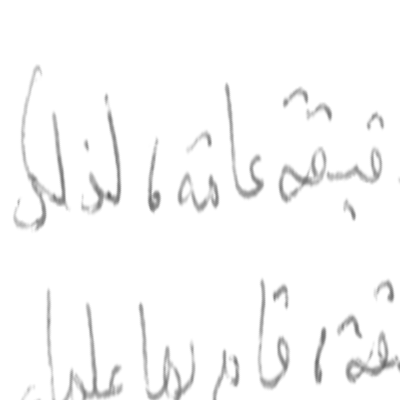 قيقة عامة، لذلك
قة، قام بها علماء